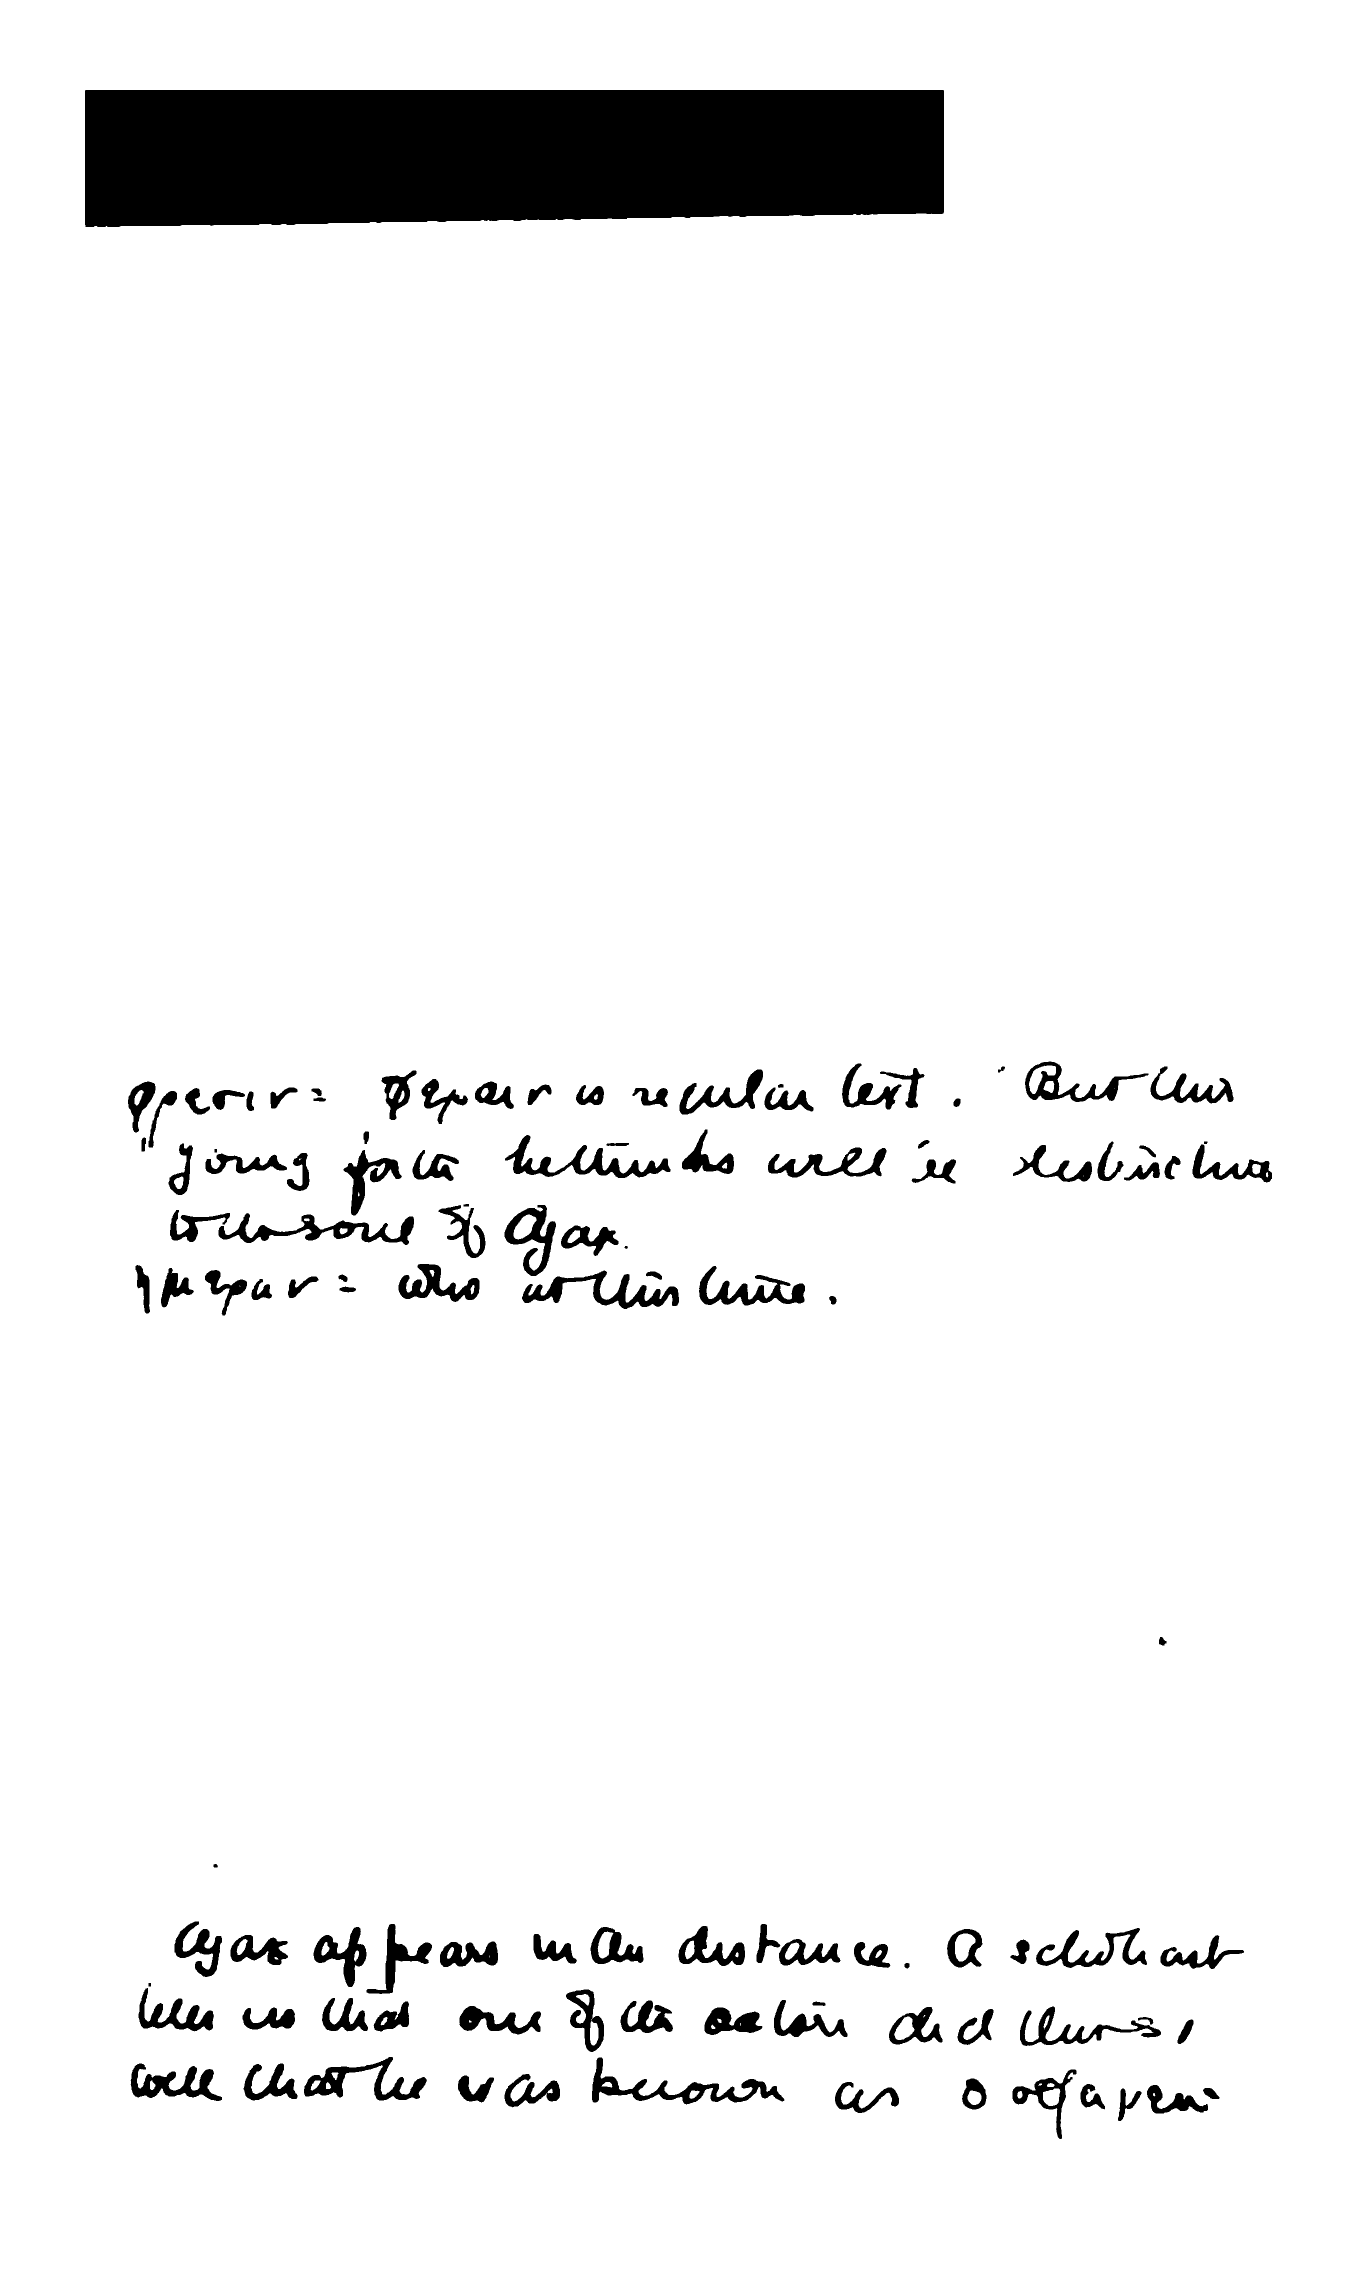 φρεσιν = φερειν is regular text. But this
going forth he thinks will be destructive
to the soul of Ajax.
ημεραν = who at this time.
Ajax appears in the distance. A scholiast
tells us that one of the actors did this so
well that he was known as ὁ σφαγεύς